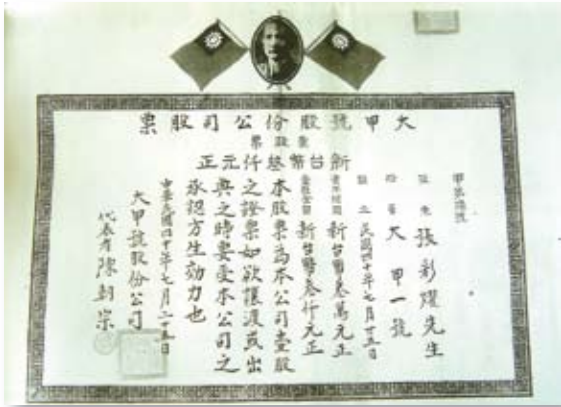 大甲號股份公司股票
壹股票
新台幣叁仟元正
張彩躍先生
大甲一號
設立 民國四十年七月廿五日
資本總額 新台幣叁萬元正
壹股金額 新台幣叁仟元正
本股票為本公司壹股
之證票如欲讓渡或出
典之時要受本公司之
承認方生効力也
中華民國四十年七月二十五日
大甲號股份公司
代表者 陳朝宗